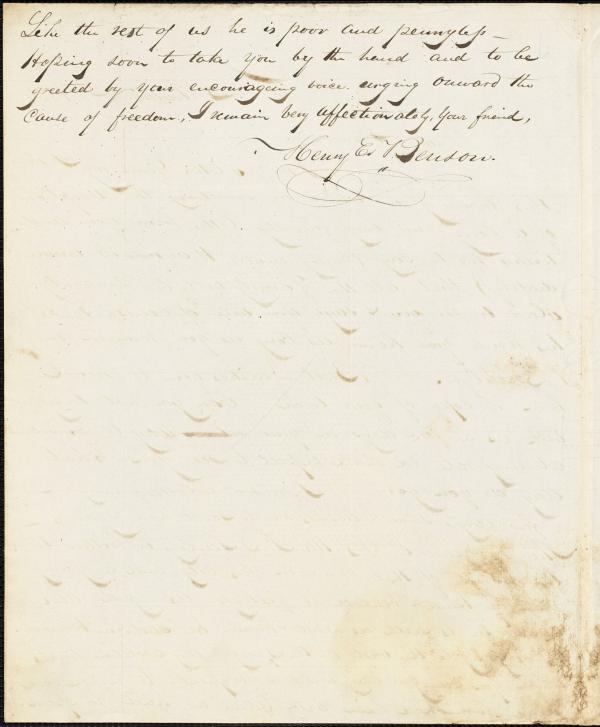 Like the rest of us he is poor and pennyless—
Hoping soon to take you by the hand and to be
greeted by your encouraging voice urging onward the
cause of freedom, I remain very affectionately, Your friend,
Henry E. Benson.